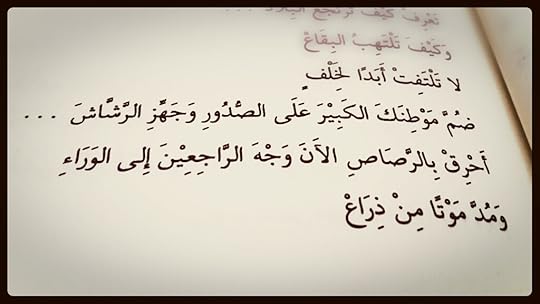 تَعْرِفْ كَيْفَ تَرْتَجِعُ البِلَادُ ...
وَكَيْفَ تَلْتَهِبُ البِقَاعْ
لا تَلْتَفِتْ أَبَدًا لِخَلْفٍ
ضُمَّ مَوْطِنَكَ الكَبِيْرَ عَلَى الصُّدُورِ وَجَهِّزِ الرَّشَّاشَ ...
أَحْرِقْ بِالرَّصَاصِ الآنَ وَجْهَ الرَّاجِعِيْنَ إِلى الوَرَاءِ
وَمُدَّ مَوْتًا مِنْ ذِرَاعْ